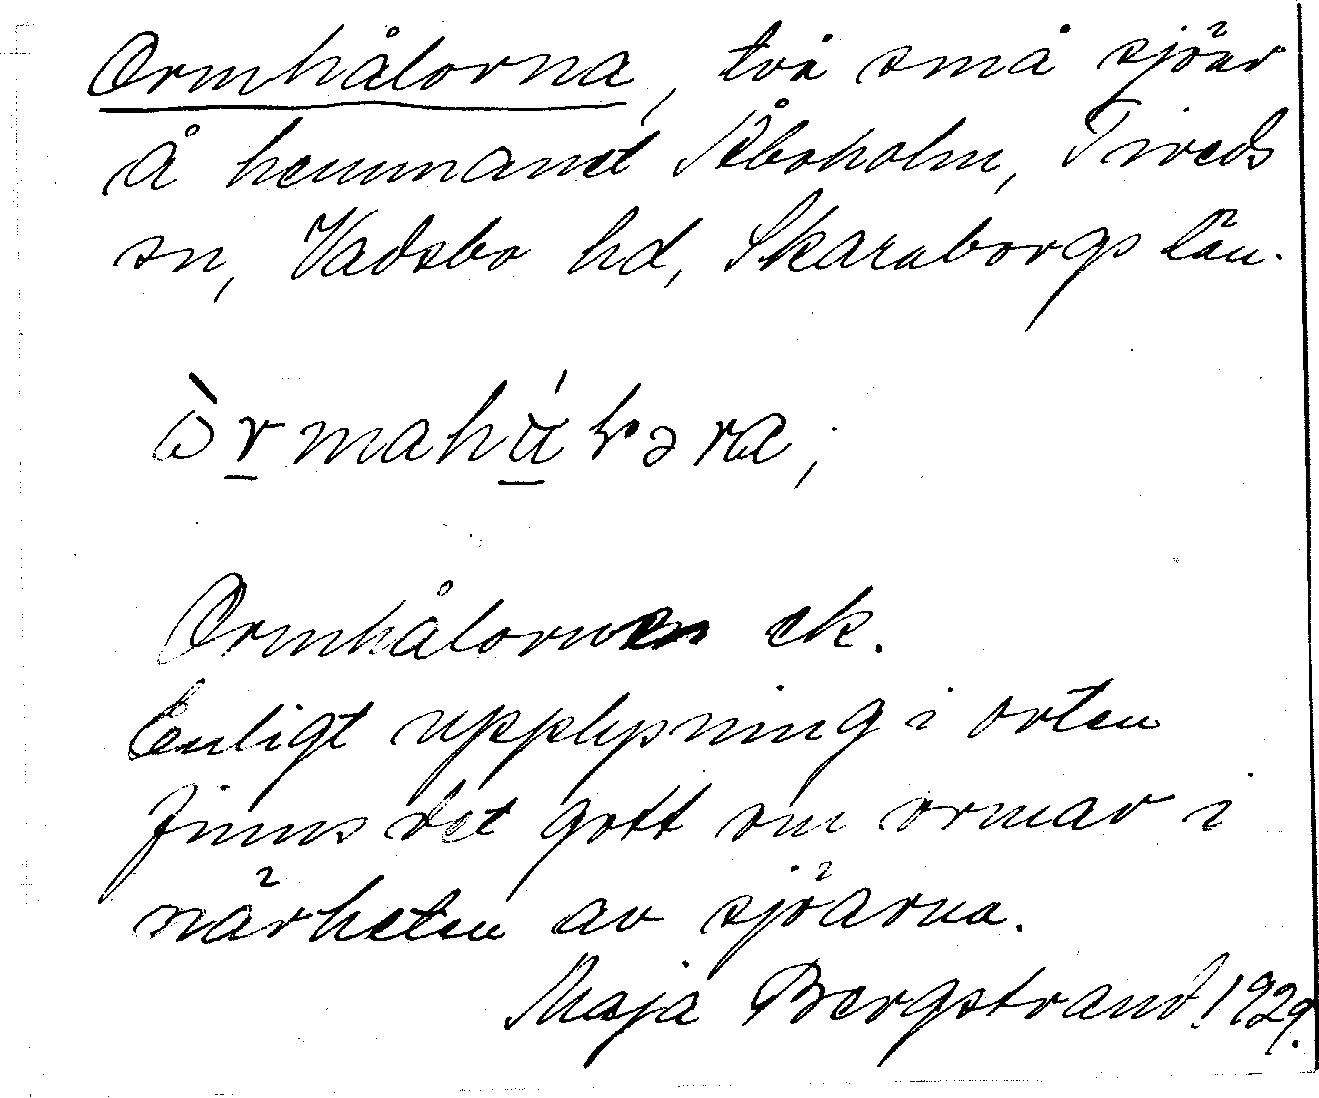 Ormhålorna, två små sjöar
å hemmanet Åboholm, Tiveds
sn, Vadsbo hd, Skaraborgs län.
Ormhålorna ek.
Enligt upplysning i orten
finns det gott om ormar i
närheten av sjöarna.
Maja Bergstrand 1929.